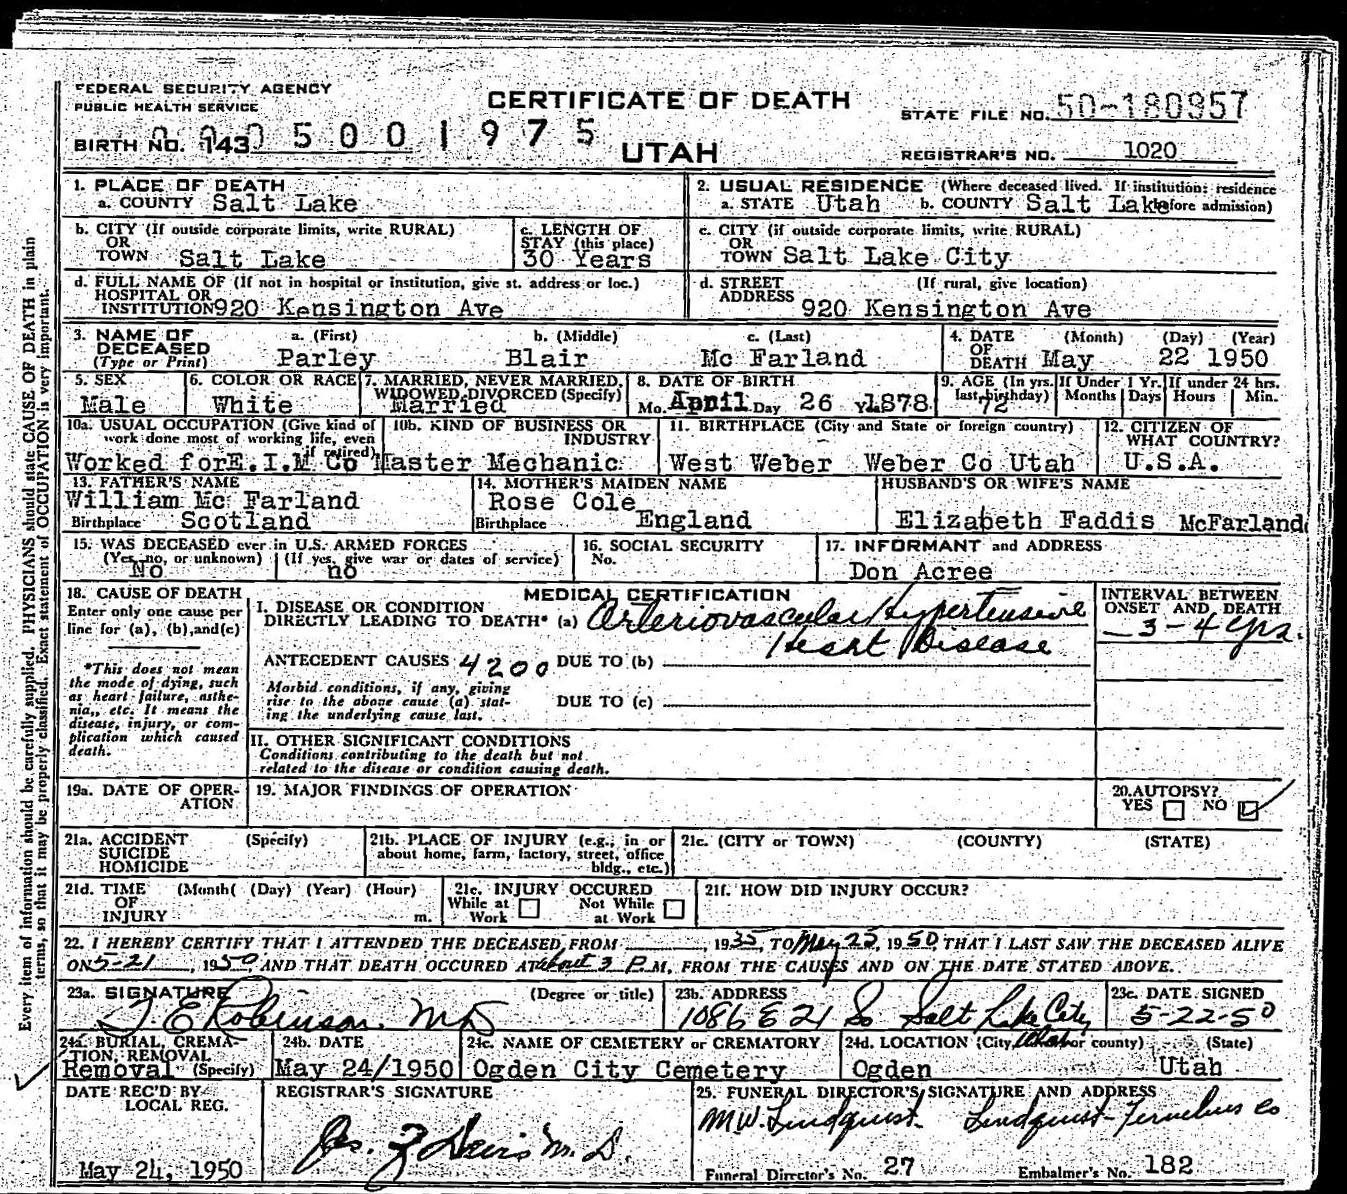 FEDERAL SECURITY AGENCY
PUBLIC HEALTH SERVICE
CERTIFICATE OF DEATH
UTAH
STATE FILE NO. 50-180957
BIRTH NO. 143 0005001975
REGISTRAR'S NO. 1020
1. PLACE OF DEATH
a. COUNTY Salt Lake
2. USUAL RESIDENCE (Where deceased lived. If institution: residence before admission)
a. STATE Utah b. COUNTY Salt Lake
b. CITY (If outside corporate limits, write RURAL)
OR
TOWN Salt Lake
c. LENGTH OF
STAY (this place)
30 Years
c. CITY (if outside corporate limits, write RURAL)
OR
TOWN Salt Lake City
d. FULL NAME OF (If not in hospital or institution, give st. address or loc.)
HOSPITAL OR
INSTITUTION 920 Kensington Ave
d. STREET (If rural, give location)
ADDRESS 920 Kensington Ave
3. NAME OF DECEASED (Type or Print)
a. (First) b. (Middle) c. (Last)
Parley Blair Mc Farland
4. DATE OF DEATH (Month) (Day) (Year)
May 22 1950
5. SEX
Male
6. COLOR OR RACE
White
7. MARRIED, NEVER MARRIED,
WIDOWED, DIVORCED (Specify)
Married
8. DATE OF BIRTH
Mo. April Day 26 Yr. 1878
9. AGE (In yrs. last birthday) If Under 1 Yr. If under 24 hrs.
72 Months Days Hours Min.
10a. USUAL OCCUPATION (Give kind of
work done most of working life, even
if retired)
Worked for E.I.M Co
10b. KIND OF BUSINESS OR
INDUSTRY
Master Mechanic
11. BIRTHPLACE (City and State or foreign country)
West Weber Weber Co Utah
12. CITIZEN OF
WHAT COUNTRY?
U.S.A.
13. FATHER'S NAME
William Mc Farland
Birthplace Scotland
14. MOTHER'S MAIDEN NAME
Rose Cole
Birthplace England
HUSBAND'S OR WIFE'S NAME
Elizabeth Faddis McFarland
15. WAS DECEASED ever in U.S. ARMED FORCES
(Yes, no, or unknown) (If yes, give war or dates of service)
No no
16. SOCIAL SECURITY
No.
17. INFORMANT and ADDRESS
Don Acree
18. CAUSE OF DEATH
Enter only one cause per
line for (a), (b), and (c)
*This does not mean
the mode of dying, such
as heart failure, asthe-
nia,, etc. It means the
disease, injury, or com-
plication which caused
death.
MEDICAL CERTIFICATION
I. DISEASE OR CONDITION
DIRECTLY LEADING TO DEATH* (a) Arteriovascular Hypertensive
Heart Disease
INTERVAL BETWEEN
ONSET AND DEATH
3-4 yrs.
ANTECEDENT CAUSES 4200 DUE TO (b)
Morbid conditions, if any, giving
rise to the above cause (a) stat-
ing the underlying cause last.
DUE TO (c)
II. OTHER SIGNIFICANT CONDITIONS
Conditions contributing to the death but not
related to the disease or condition causing death.
19a. DATE OF OPER-
ATION
19. MAJOR FINDINGS OF OPERATION
20. AUTOPSY?
YES NO
21a. ACCIDENT (Specify)
SUICIDE
HOMICIDE
21b. PLACE OF INJURY (e.g., in or
about home, farm, factory, street, office
bldg., etc.)
21c. (CITY or TOWN) (COUNTY) (STATE)
21d. TIME (Month( (Day) (Year) (Hour)
OF
INJURY m.
21e. INJURY OCCURED
While at Work Not While at Work
21f. HOW DID INJURY OCCUR?
22. I HEREBY CERTIFY THAT I ATTENDED THE DECEASED FROM 1935, TO May 23, 1950 THAT I LAST SAW THE DECEASED ALIVE
ON 5-21, 1950, AND THAT DEATH OCCURED AT about 3 P.M, FROM THE CAUSES AND ON THE DATE STATED ABOVE.
23a. SIGNATURE (Degree or title)
T E Robinson. MD
23b. ADDRESS
1086 E 21 So Salt Lake City Utah
23c. DATE SIGNED
5-22-50
24a. BURIAL, CREMA-
TION, REMOVAL
Removal (Specify)
24b. DATE
May 24/1950
24c. NAME OF CEMETERY or CREMATORY
Ogden City Cemetery
24d. LOCATION (City, or county) (State)
Ogden Utah
DATE REC'D BY
LOCAL REG.
May 24, 1950
REGISTRAR'S SIGNATURE
Jos. Z Davis M.D.
25. FUNERAL DIRECTOR'S SIGNATURE AND ADDRESS
M W. Lindquist Lindquist
Funeral Director's No. 27 Embalmer's No. 182
Every item of information should be carefully supplied. PHYSICIANS should state CAUSE OF DEATH in plain
terms, so that it may be properly classified. Exact statement of OCCUPATION is very important.